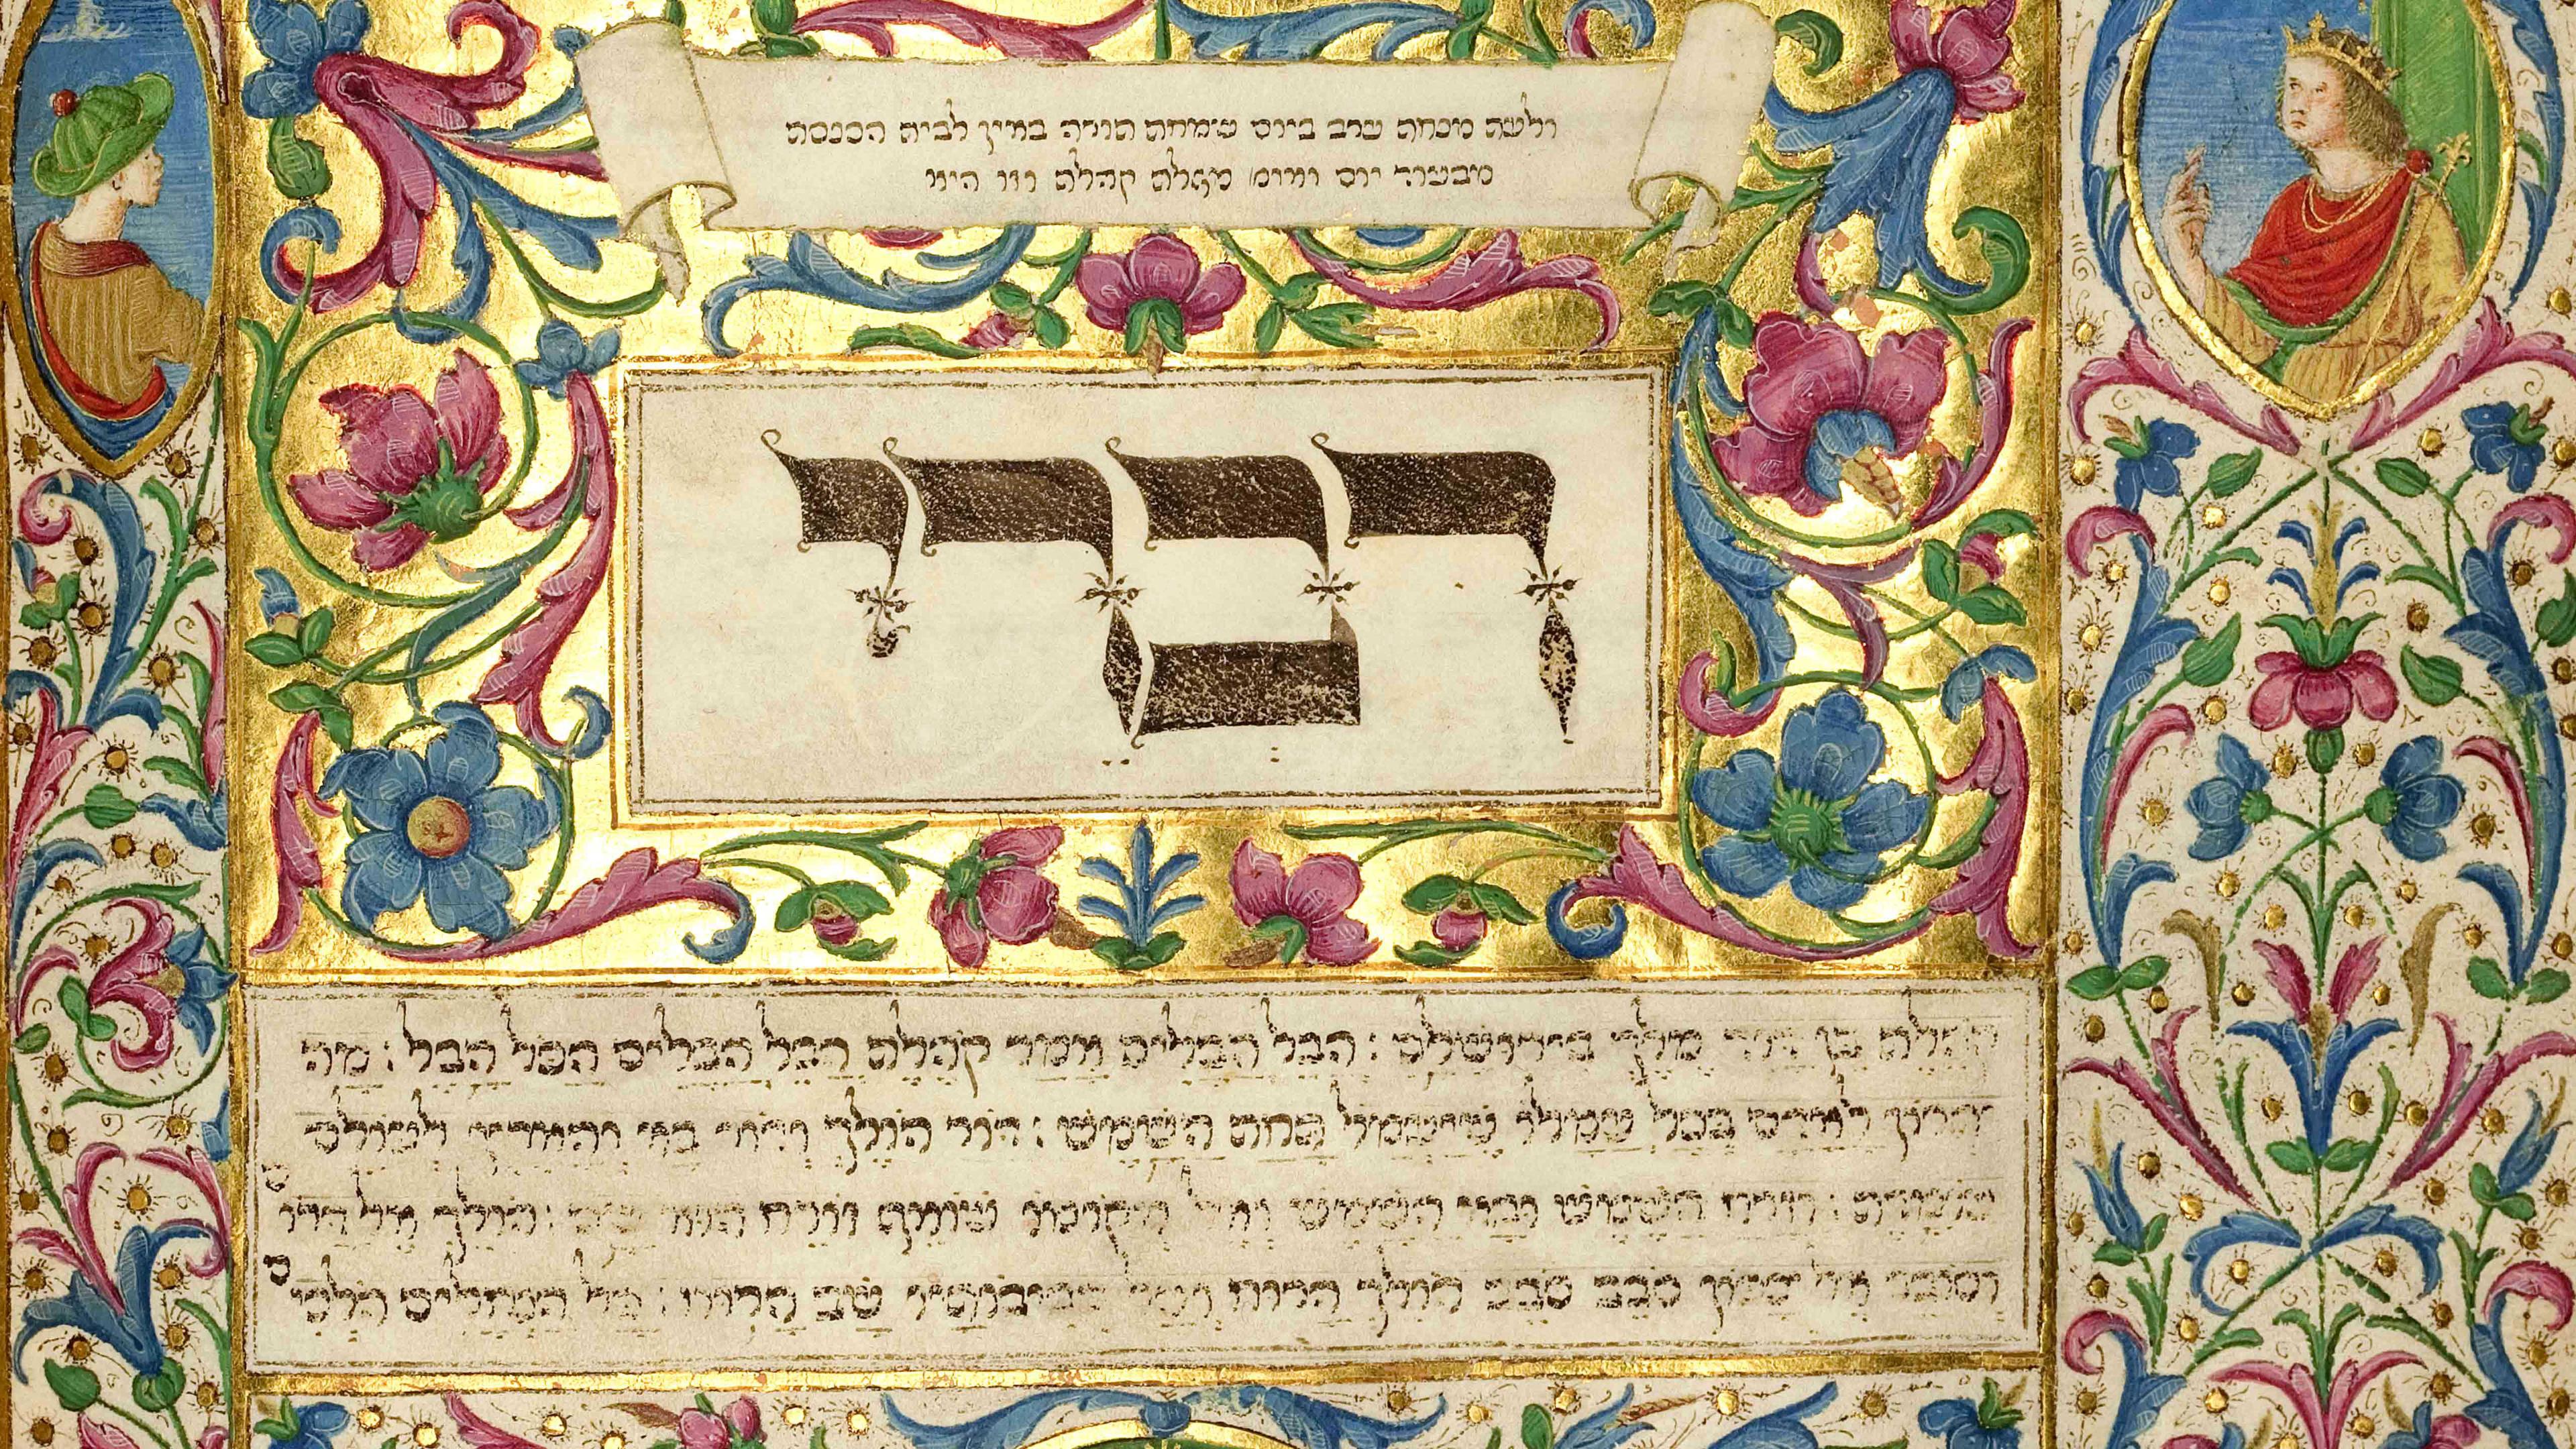 ולעת מנחת ערב ביום שמחת תורה באין לבית הכנסת
מבעוד יום ואומ׳ מגלת קהלת וזו היא
דברי
קהלת בן דוד מלך בירושלם : הבל הבלים אמר קהלת הבל הבלים הכל הבל : מה
יתרון לאדם בכל עמלו שיעמול תחת השמש : דור הולך ודור בא והארץ לעולם
עומדת : וזרח השמש ובא השמש ואל מקומו שואף זורח הוא שם : הולך אל דרום
וסובב אל צפון סבב סבב הולך הרוח ועל סביבותיו שב הרוח : כל הנחלים הלכים